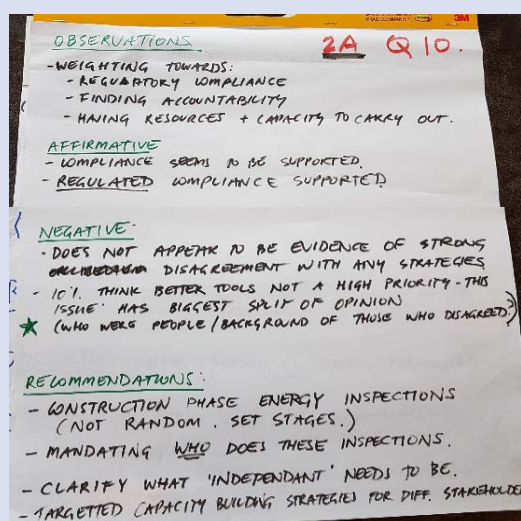 3M
OBSERVATIONS
2A Q10.
- WEIGHTING TOWARDS:
- REGULATORY COMPLIANCE
- FINDING ACCOUNTABILITY
- HAVING RESOURCES + CAPACITY TO CARRY OUT.
AFFIRMATIVE
- COMPLIANCE SEEMS TO BE SUPPORTED.
- REGULATED COMPLIANCE SUPPORTED
NEGATIVE:
- DOES NOT APPEAR TO BE EVIDENCE OF STRONG
DISAGREEMENT WITH ANY STRATEGIES
- 10% THINK BETTER TOOLS NOT A HIGH PRIORITY - THIS
ISSUE HAS BIGGEST SPLIT OF OPINION
(WHO WERE PEOPLE / BACKGROUND OF THOSE WHO DISAGREED?)
RECOMMENDATIONS:
- CONSTRUCTION PHASE ENERGY INSPECTIONS
(NOT RANDOM. SET STAGES.)
- MANDATING WHO DOES THESE INSPECTIONS.
- CLARIFY WHAT 'INDEPENDANT' NEEDS TO BE.
- TARGETTED CAPACITY BUILDING STRATEGIES FOR DIFF. STAKEHOLDE